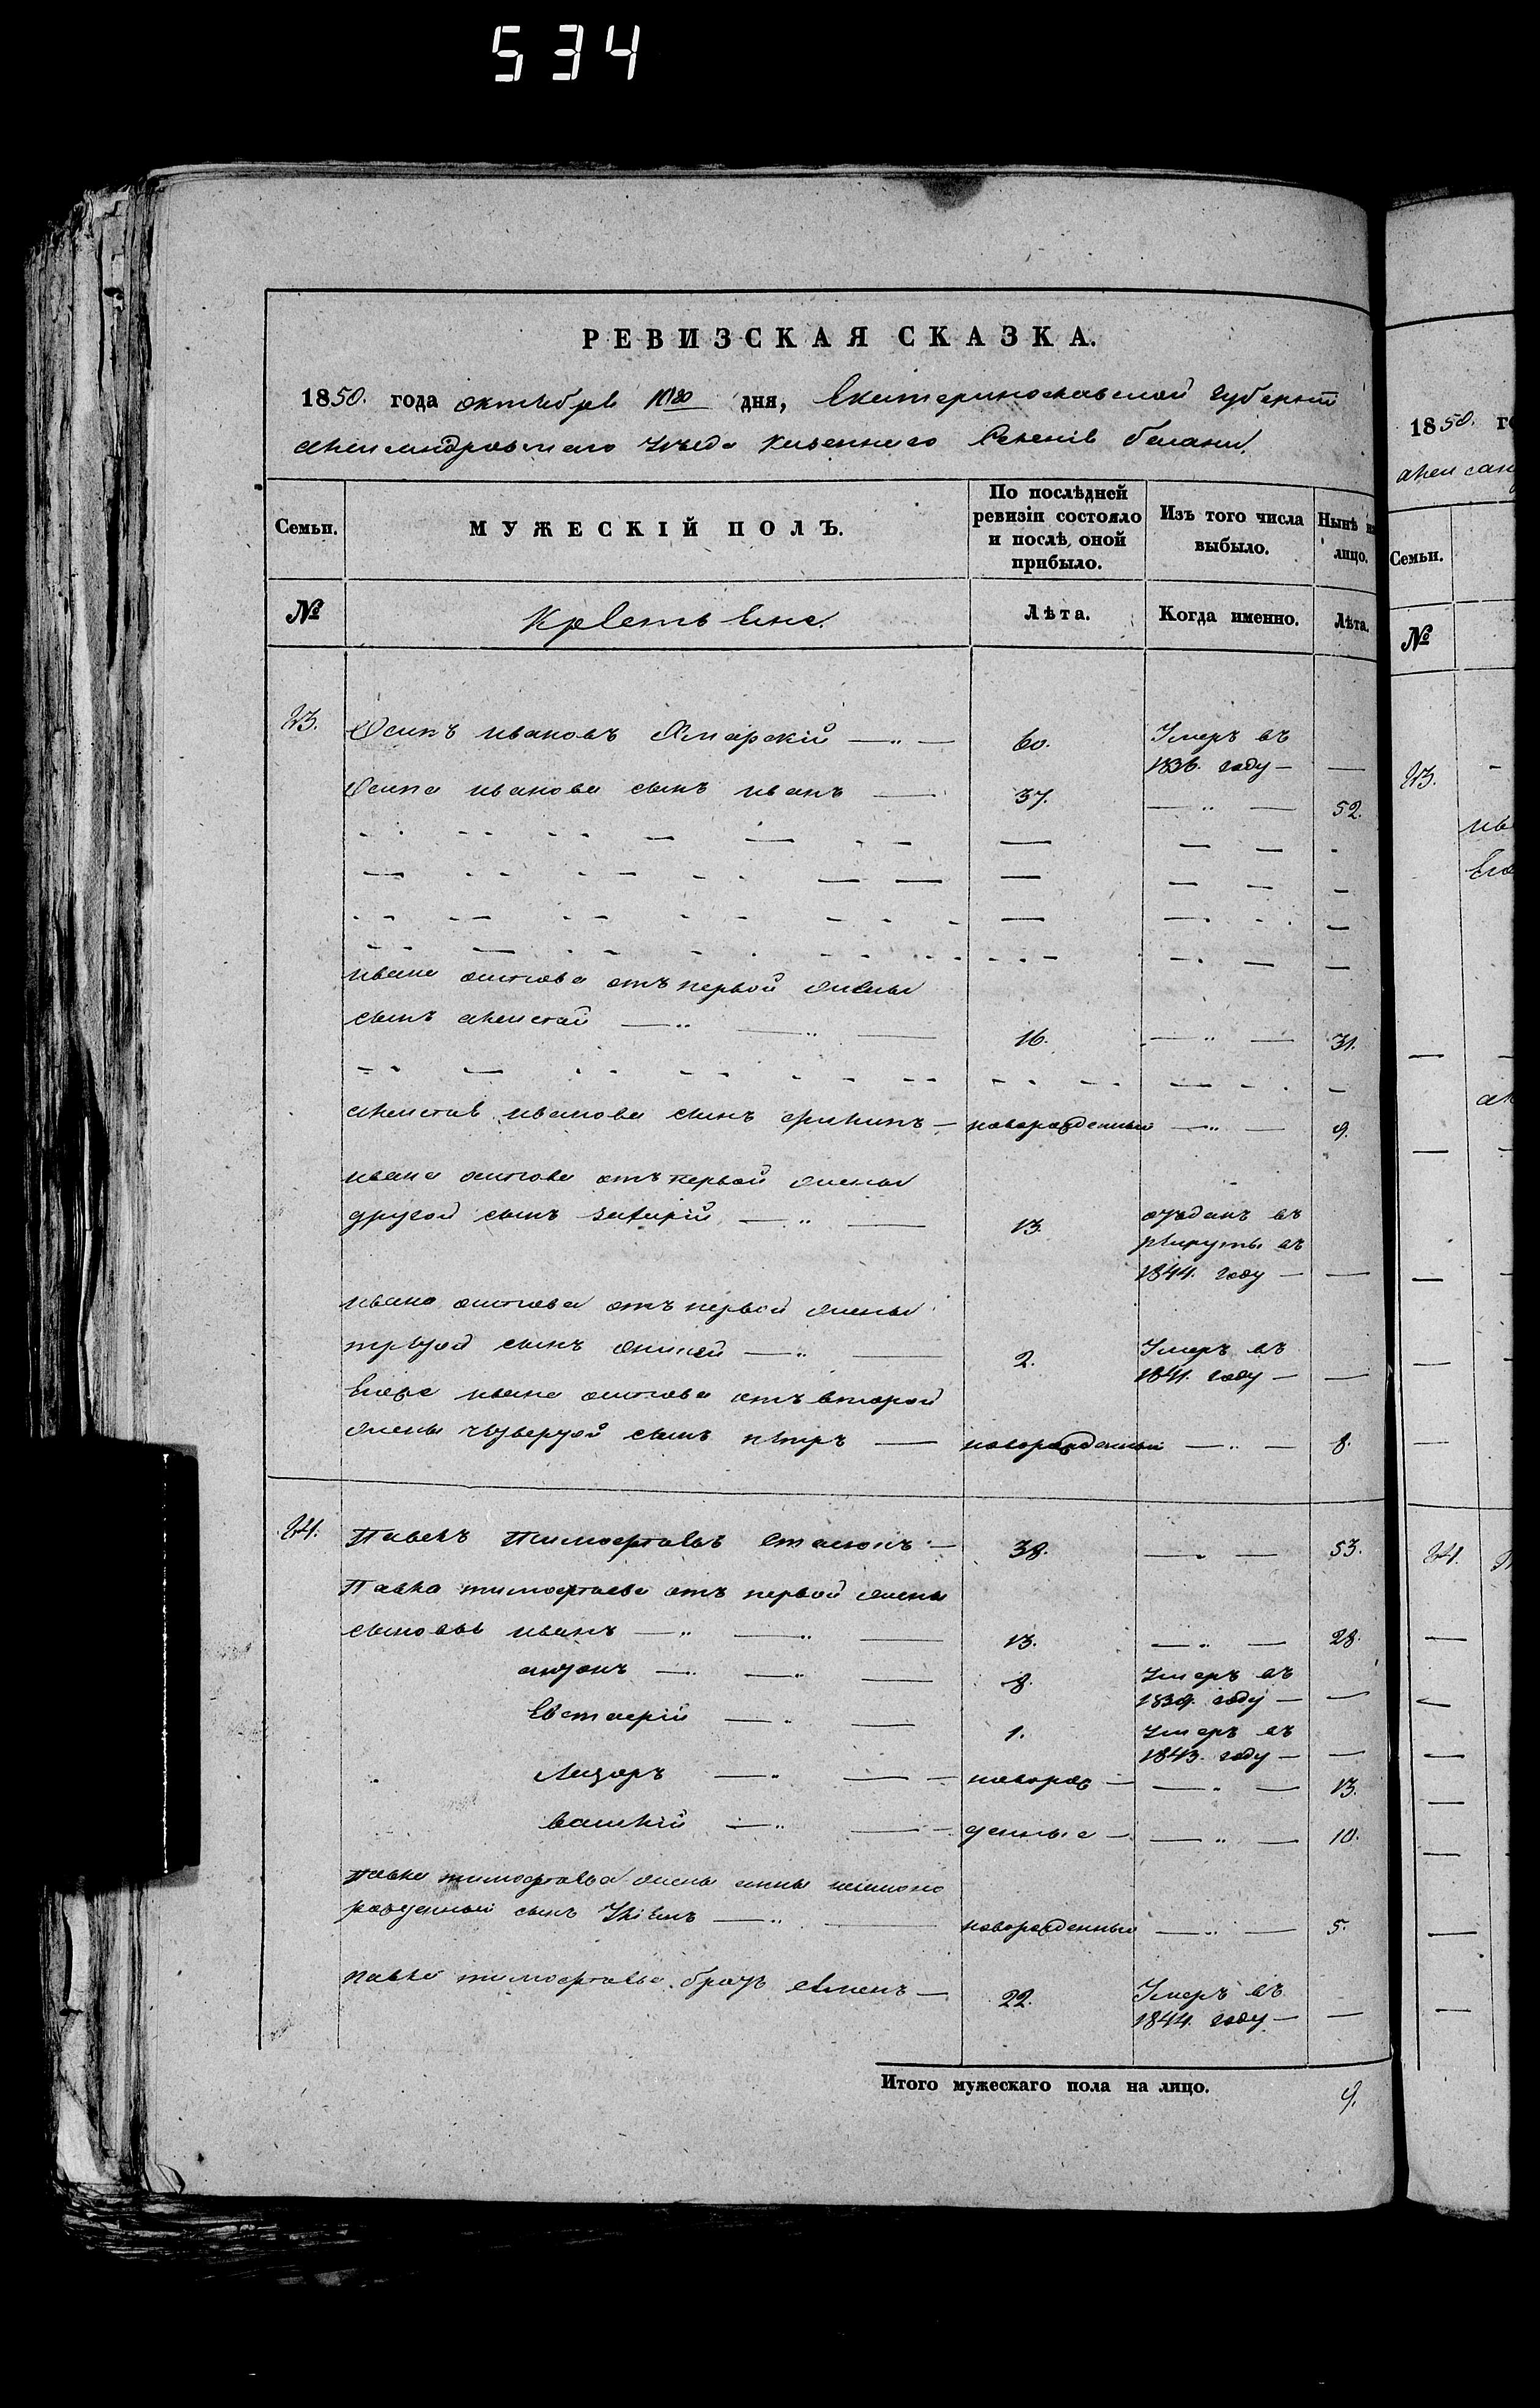 534
РЕВИЗСКАЯ СКАЗКА.
1850. года октября дня, Екатеринославской губерніи
александровскаго уѣзда казеннаго Селенія
Семьи. МУЖЕСКІЙ ПОЛЪ. По послѣдней ревизіи состояло и послѣ оной прибыло. Изъ того числа выбыло. Нынѣ на лицо.
№ Крестьяне. Лѣта. Когда именно. Лѣта.
23. Осипъ ивановъ — 60. Умеръ въ
1836. году — —
Осипа иванова сынъ иванъ — 37. — 52.
ивана осипова отъ первой жены
сынъ алексей — 16. — 31.
алексея иванова сынъ — новорожденный — 9.
ивана осипова отъ первой жены
другой сынъ захарій — 13. отданъ въ
рекруты въ
1844. году — —
ивана осипова отъ первой жены
третей сынъ — 2. Умеръ въ
1841. году — —
Егоже ивана осипова отъ второй
жены четвертой сынъ петръ — новорожденный — 8.
24. Павелъ Тимофеевъ — 38. — 53.
Павла тимофеева отъ первой жены
сыновья иванъ — 13. — 28.
антонъ — 8. Умеръ въ
1839. году — —
Евстафій — 1. Умеръ въ
1843. году — —
Лазарь — новорож — 13.
василій — денные — 10.
Павла тимофеева жены анны незаконо
рожденный сынъ — новорожденный — 5.
павла тимофеева братъ семенъ — 22. Умеръ въ
1844. году — —
Итого мужескаго пола на лицо. 9.
1850. го
алексан
Семьи.
№
23.
ив
Его
ал
24.